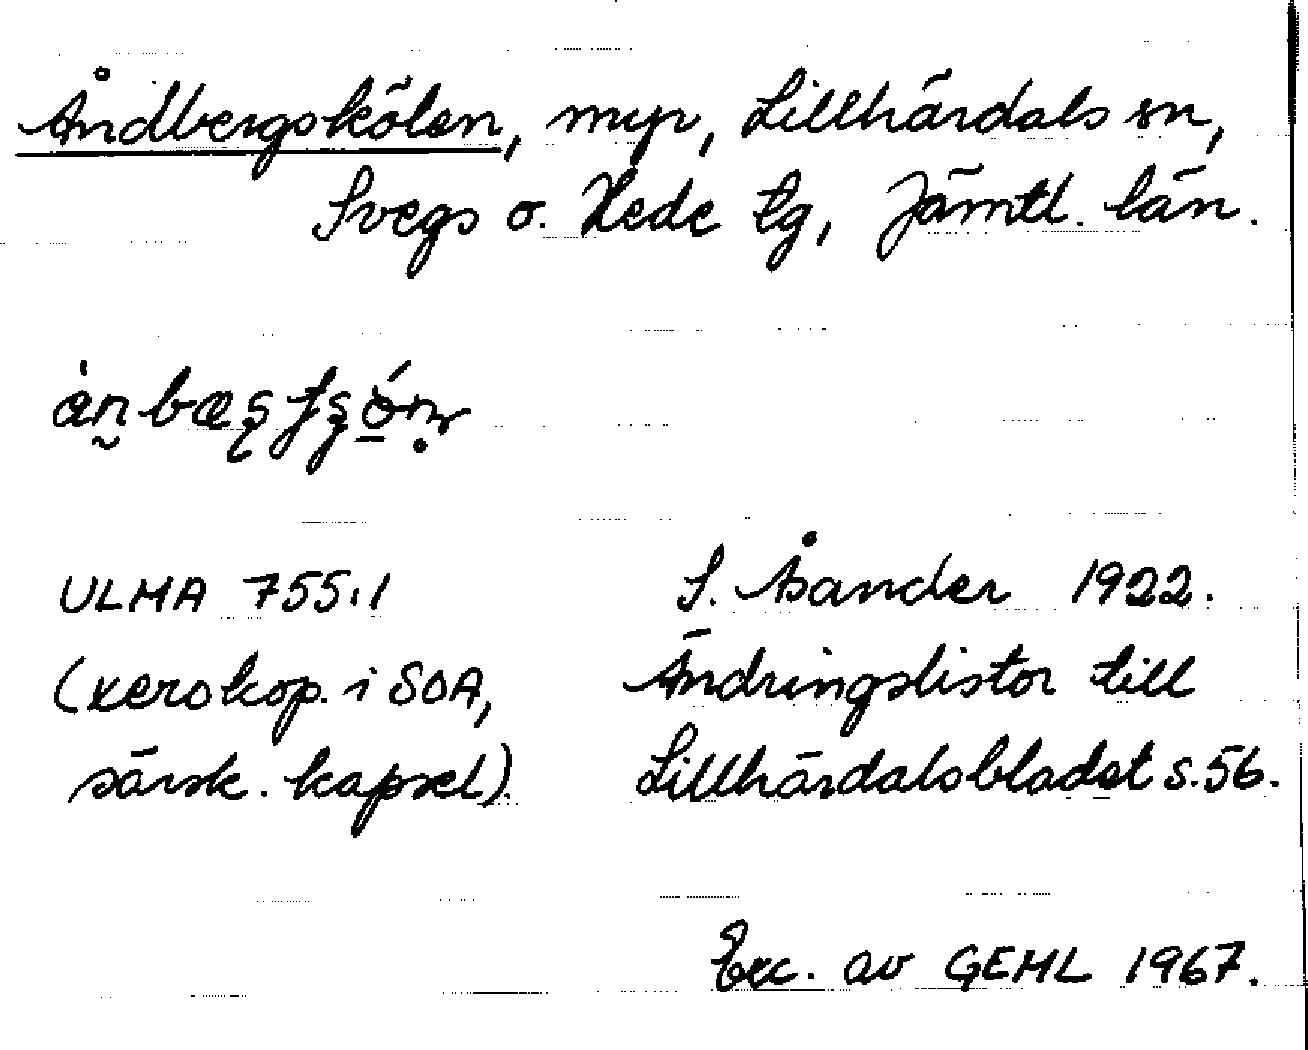 Åndbergskölen, myr, Lillhärdals sn,
Svegs o. Hede tg, Jämtl. län.
ULMA 755:1
S. Åsander 1922.
(xerokop. i SOA,
Ändringslistor till
särsk. kapsel).
Lillhärdalsbladet s. 56.
Exc. av GEHL 1967.